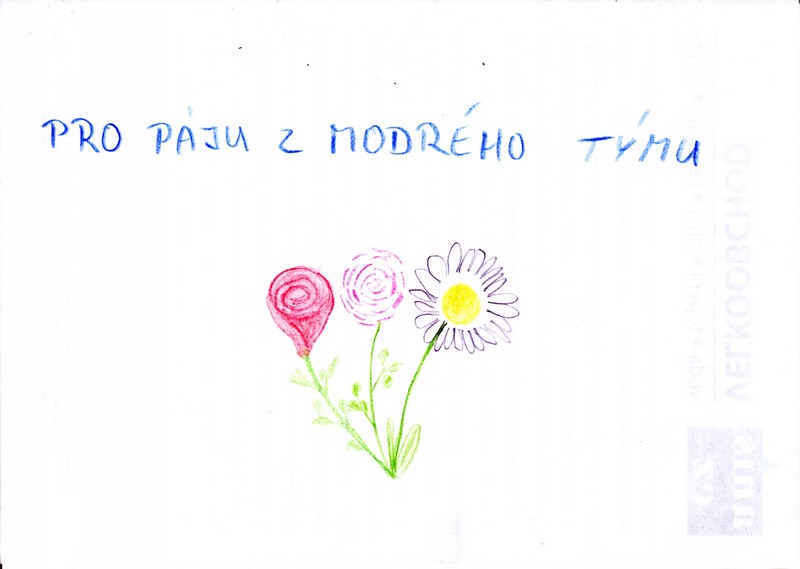 PRO PÁJU Z MODRÉHO TÝMU
VELKOOBCHOD